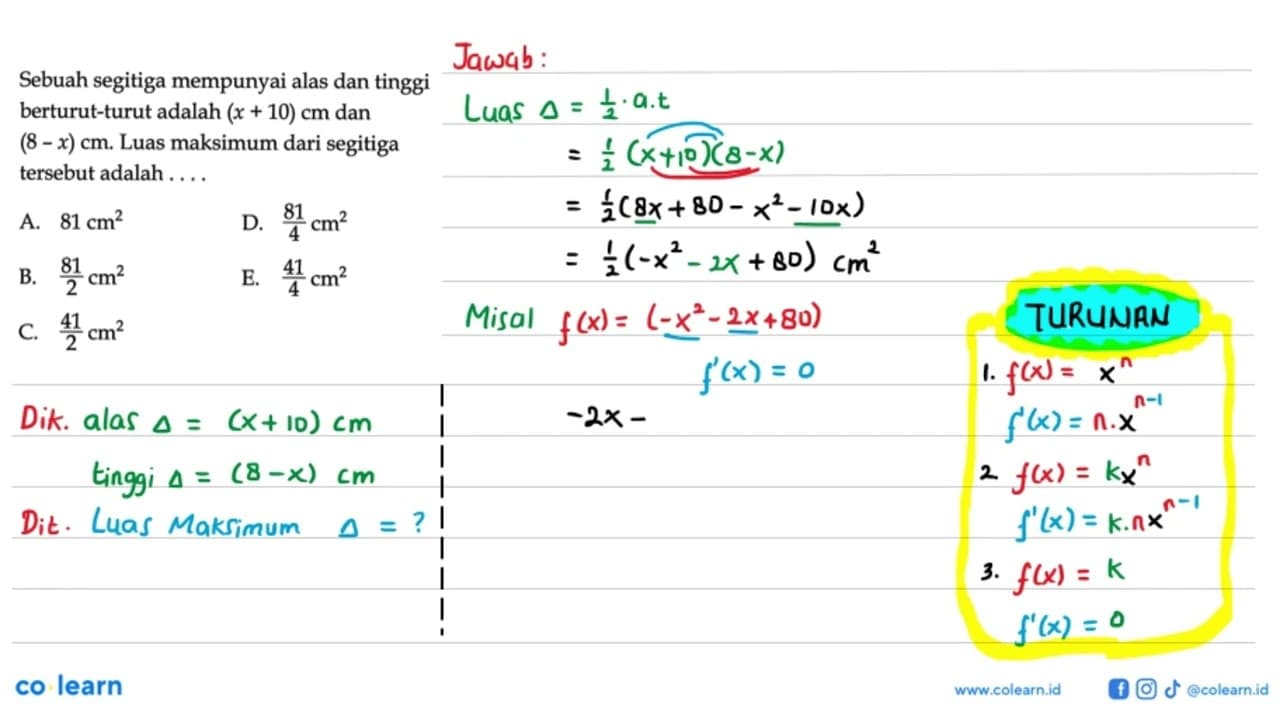 Sebuah segitiga mempunyai alas dan tinggi
berturut-turut adalah (x + 10) cm dan
(8 – x) cm. Luas maksimum dari segitiga
tersebut adalah . . . .
A. 81 cm²
D. 81/4 cm²
B. 81/2 cm²
E. 41/4 cm²
C. 41/2 cm²
Dik. alas Δ = (x + 10) cm
tinggi Δ = (8 – x) cm
Dit. Luas Maksimum Δ = ?
Jawab :
Luas Δ = 1/2 · a.t
= 1/2 (x+10)(8-x)
= 1/2 (8x + 80 - x² - 10x)
= 1/2 (-x² - 2x + 80) cm²
Misal f(x) = (-x² - 2x + 80)
f'(x) = 0
-2x -
TURUNAN
1. f(x) = xⁿ
f'(x) = n.xⁿ⁻¹
2 f(x) = kxⁿ
f'(x) = k.nxⁿ⁻¹
3. f(x) = k
f'(x) = 0
co learn
www.colearn.id
@colearn.id